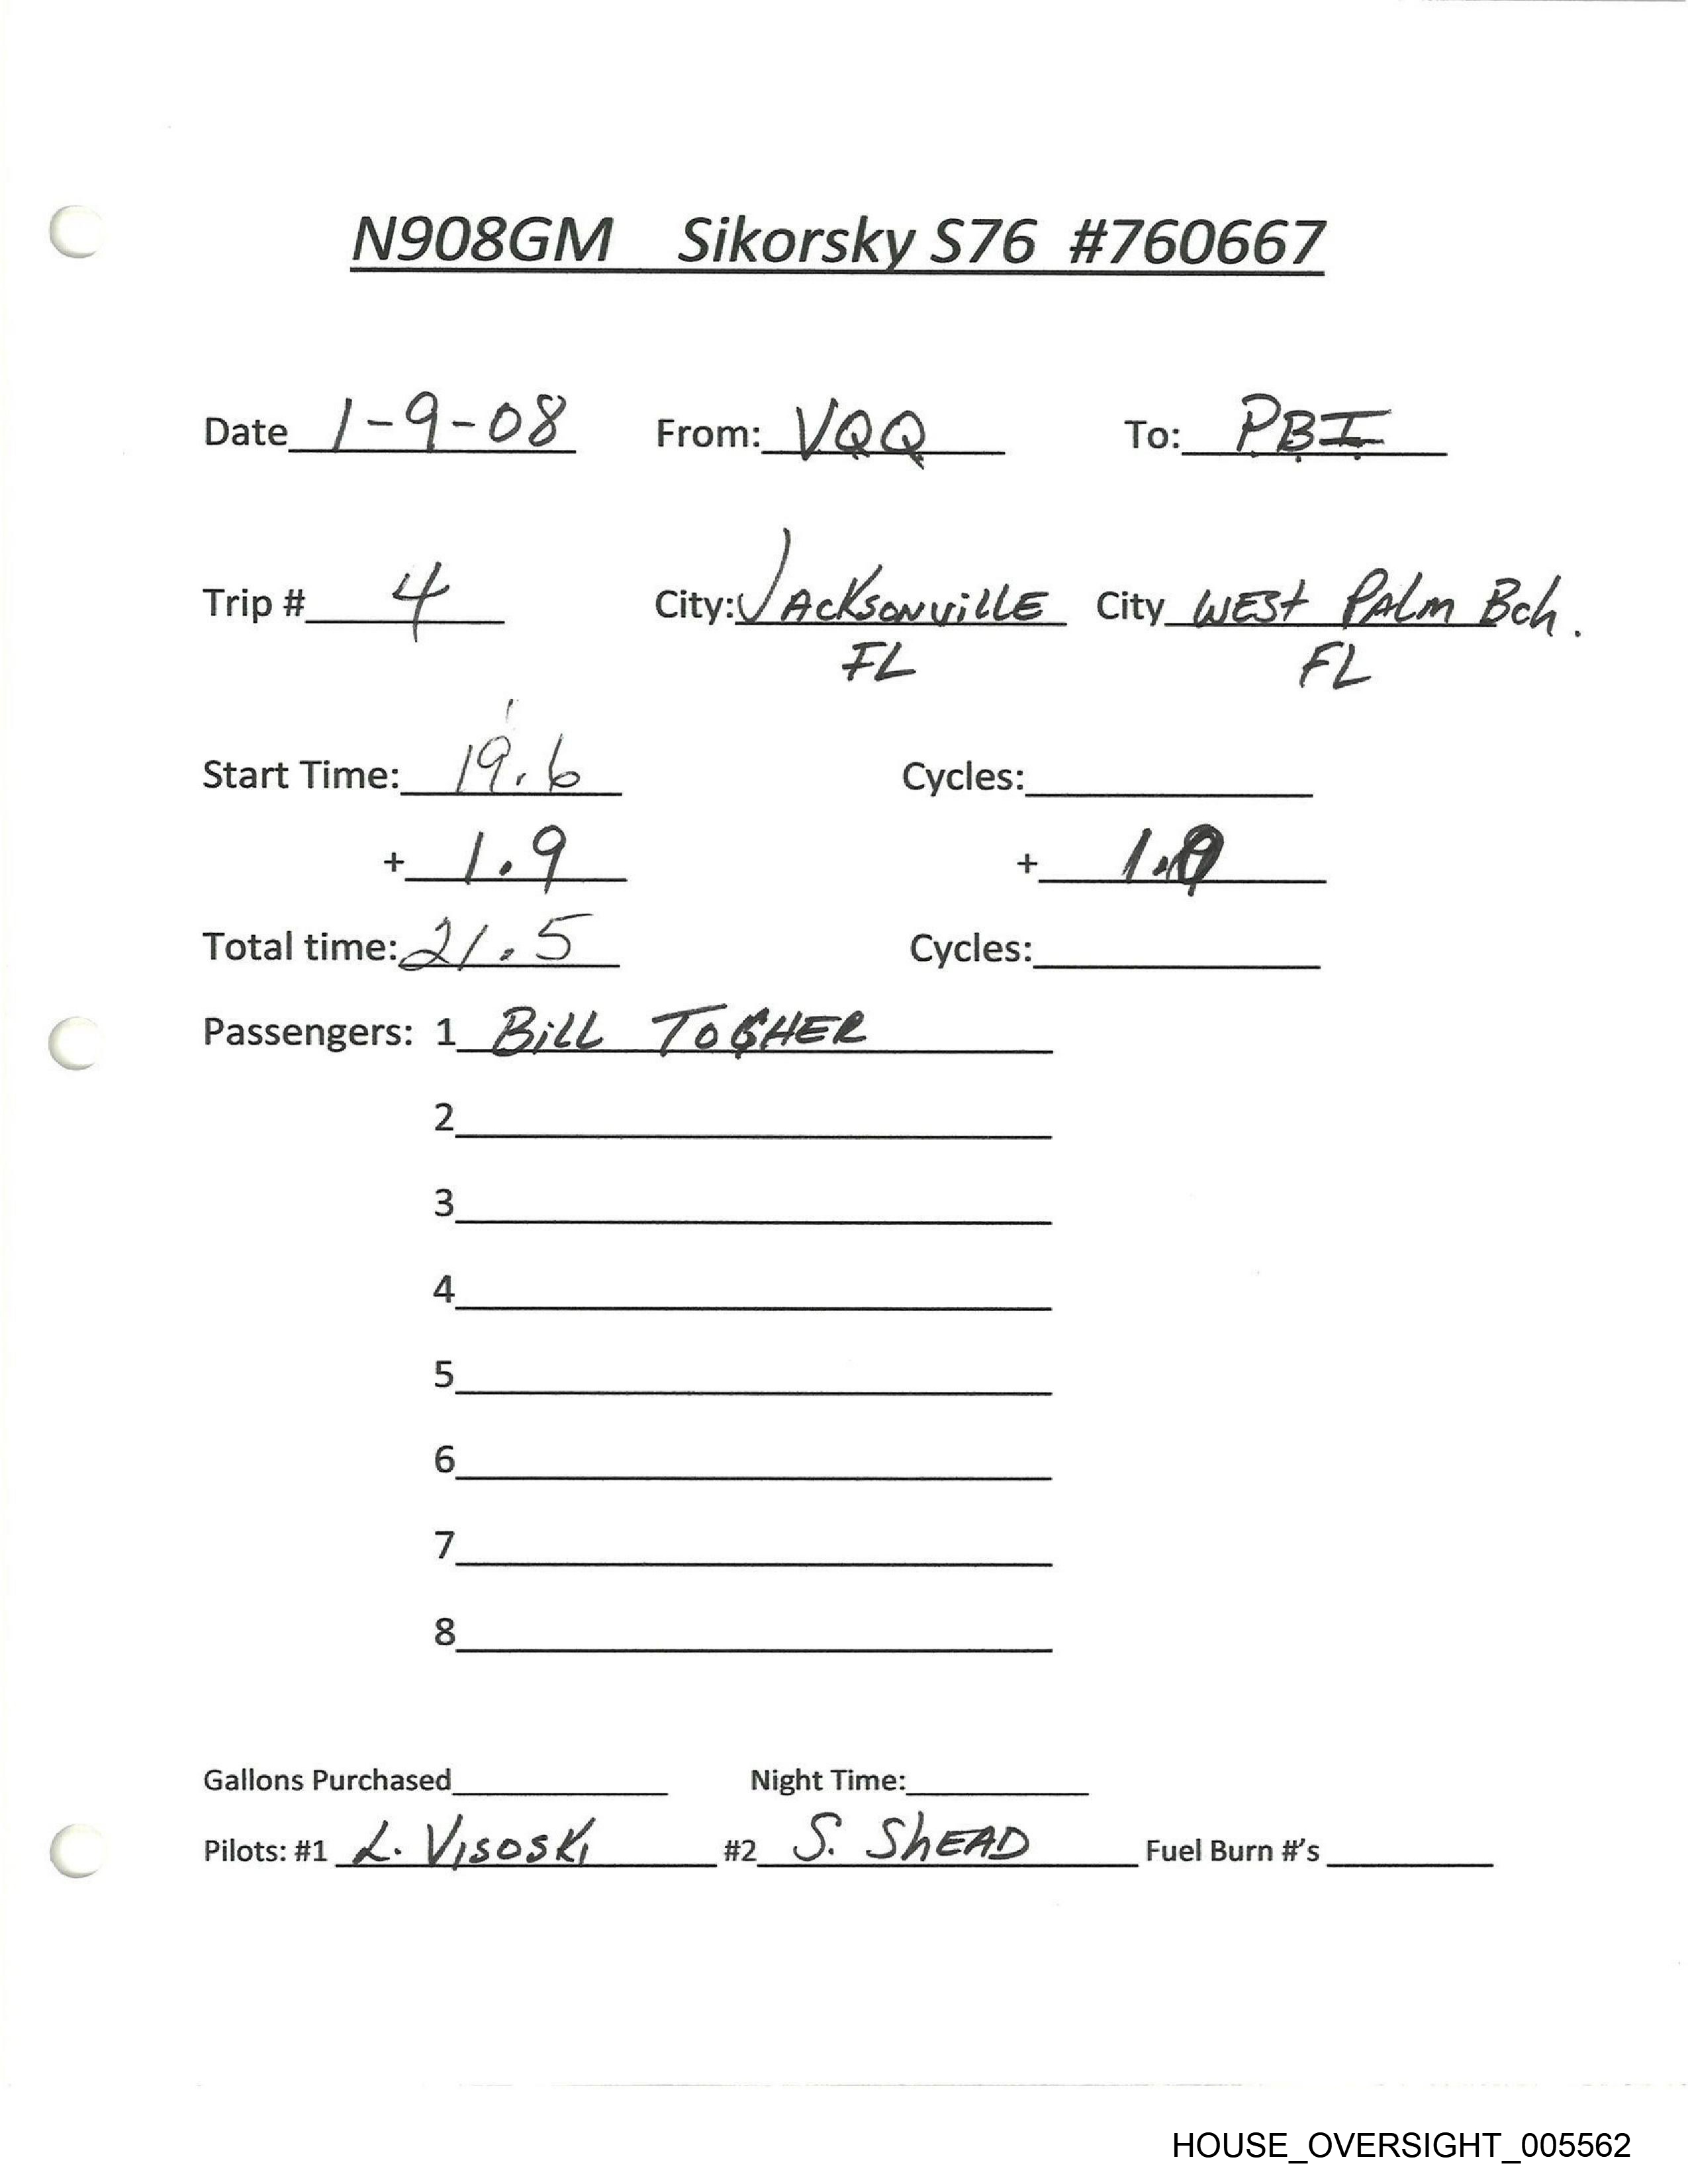 N908GM Sikorsky S76 #760667
Date 1-9-08 From: VQQ To: PBI
Trip # 4 City: JACKSONVILLE City WEST PALM Bch.
FL FL
Start Time: 19.6 Cycles:
+ 1.9 +
Total time: 21.5 Cycles:
Passengers: 1 BILL TOGHER
2
3
4
5
6
7
8
Gallons Purchased Night Time:
Pilots: #1 L. VISOSKI #2 S. SHEAD Fuel Burn #'s
HOUSE_OVERSIGHT_005562